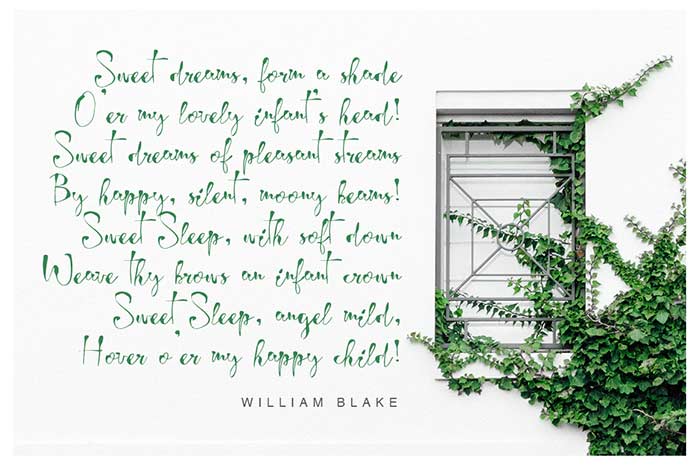 Sweet dreams, form a shade
O'er my lovely infant's head!
Sweet dreams of pleasant streams
By happy, silent, moony beams!
Sweet Sleep, with soft down
Weave thy brows an infant crown
Sweet Sleep, angel mild,
Hover o'er my happy child!
WILLIAM BLAKE